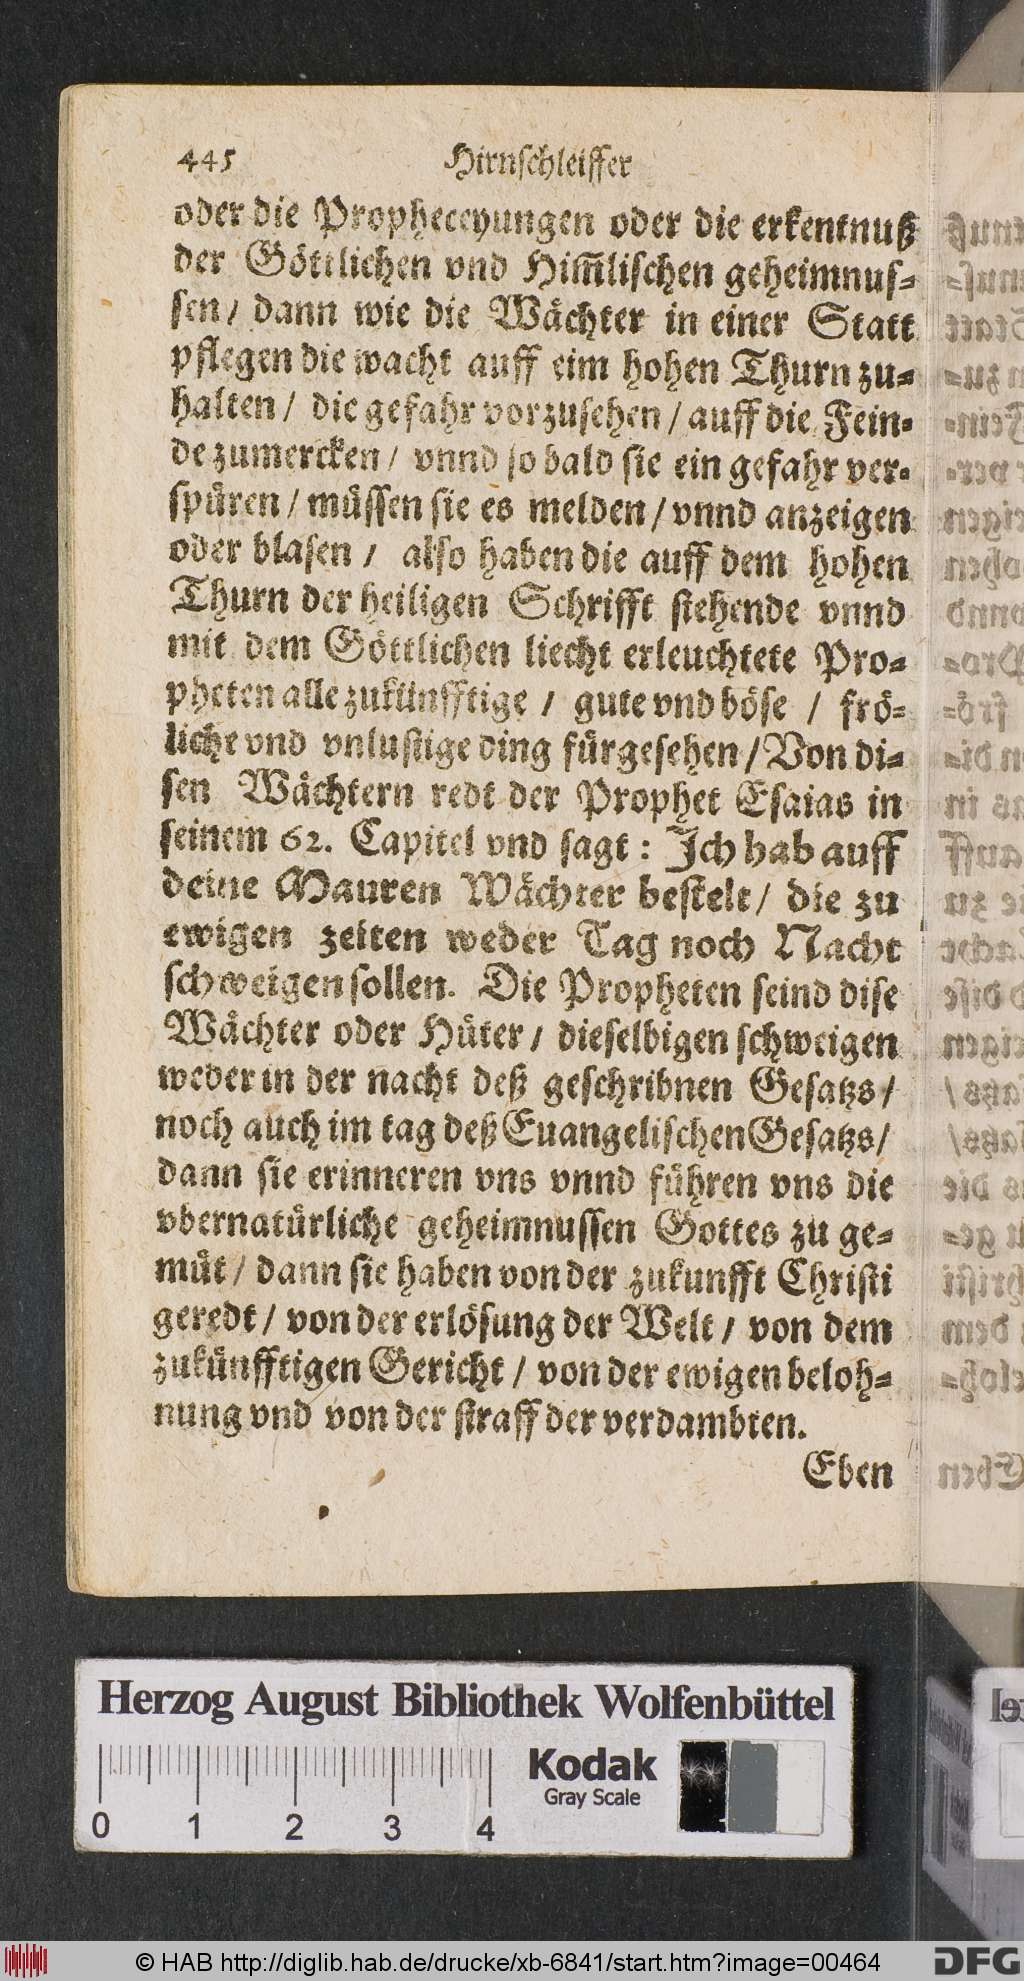 445 Hirnschleiffer
oder die Propheceyungen oder die erkentnuß
der Göttlichen vnd Him̃lischen geheimnus-
sen / dann wie die Wächter in einer Statt
pflegen die wacht auff eim hohen Thurn zu-
halten / die gefahr vorzusehen / auff die Fein-
de zumercken / vnnd so bald sie ein gefahr ver-
spüren / müssen sie es melden / vnnd anzeigen
oder blasen / also haben die auff dem hohen
Thurn der heiligen Schrifft stehende vnnd
mit dem Göttlichen liecht erleuchtete Pro-
pheten alle zukünfftige / gute vnd böse / frö-
liche vnd vnlustige ding fürgesehen / Von di-
sen Wächtern redt der Prophet Esaias in
seinem 62. Capitel vnd sagt : Ich hab auff
deine Mauren Wächter bestelt / die zu
ewigen zeiten weder Tag noch Nacht
schweigen sollen. Die Propheten seind dise
Wächter oder Hüter / dieselbigen schweigen
weder in der nacht deß geschribnen Gesatzs /
noch auch im tag deß Euangelischen Gesatzs /
dann sie erinneren vns vnnd führen vns die
vbernatürliche geheimnussen Gottes zu ge-
müt / dann sie haben von der zukunfft Christi
geredt / von der erlösung der Welt / von dem
zukünfftigen Gericht / von der ewigen beloh-
nung vnd von der straff der verdambten.
Eben
Herzog August Bibliothek Wolfenbüttel
Kodak
Gray Scale
0 1 2 3 4
© HAB http://diglib.hab.de/drucke/xb-6841/start.htm?image=00464
DFG